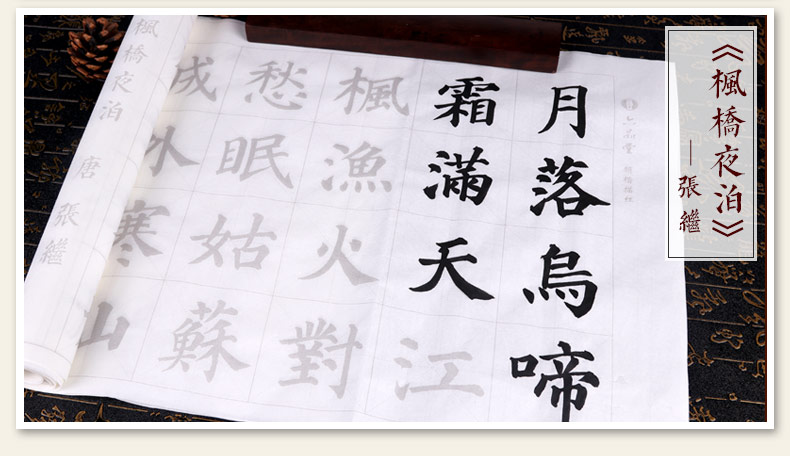 《楓橋夜泊》
—張繼
六品堂
月落烏啼
霜滿天江
楓漁火對
愁眠姑蘇
寒山
楓橋夜泊 唐 張繼